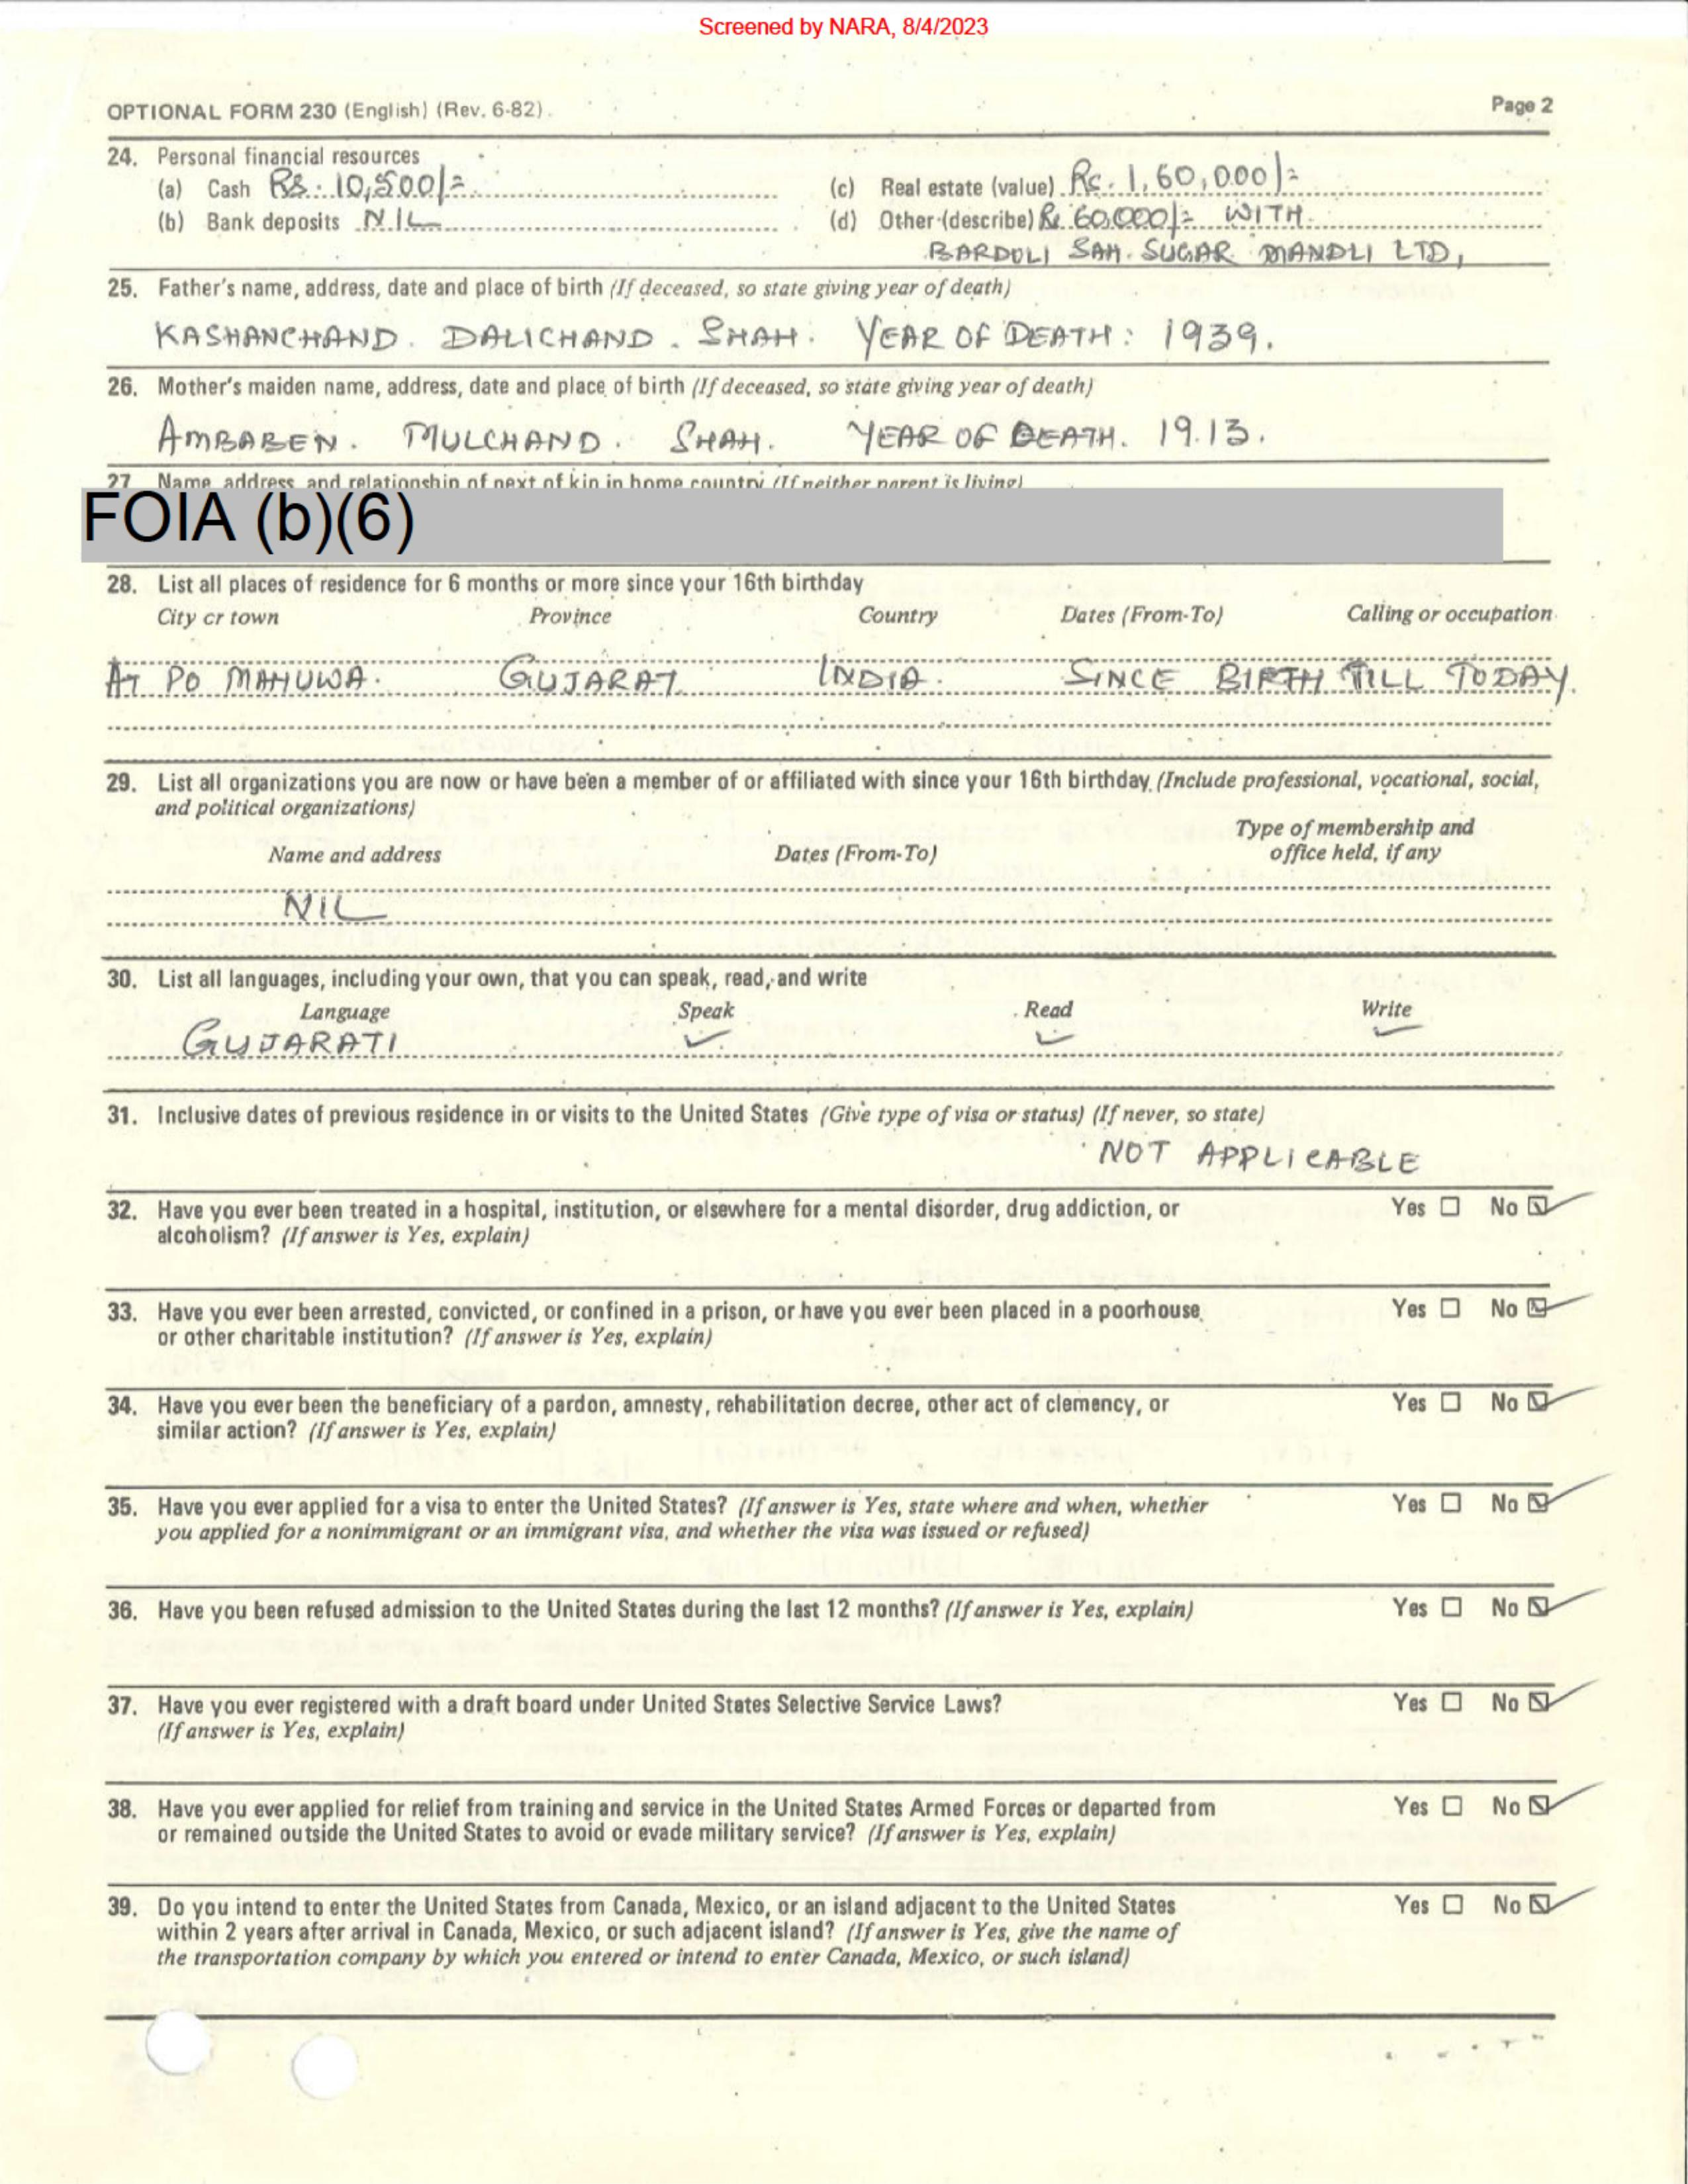 Screened by NARA, 8/4/2023
OPTIONAL FORM 230 (English) (Rev. 6-82)
Page 2
24. Personal financial resources
(a) Cash Rs. 10,500/=
(c) Real estate (value) Rs. 1,60,000/=
(b) Bank deposits NIL
(d) Other (describe) Rs. 60,000/= WITH
BARDOLI SAH. SUGAR MANDLI LTD,
25. Father's name, address, date and place of birth (If deceased, so state giving year of death)
KASHANCHAND. DALICHAND. SHAH. YEAR OF DEATH: 1939.
26. Mother's maiden name, address, date and place of birth (If deceased, so state giving year of death)
AMBABEN. MULCHAND. SHAH. YEAR OF DEATH. 1913.
27 Name, address and relationship of next of kin in home country (If neither parent is living)
FOIA (b)(6)
28. List all places of residence for 6 months or more since your 16th birthday
City or town Province Country Dates (From-To) Calling or occupation
AT PO MAHUWA. GUJARAT INDIA. SINCE BIRTH TILL TODAY.
29. List all organizations you are now or have been a member of or affiliated with since your 16th birthday (Include professional, vocational, social,
and political organizations)
Type of membership and
Name and address Dates (From-To) office held, if any
NIL
30. List all languages, including your own, that you can speak, read, and write
Language Speak Read Write
GUJARATI ✓ ✓ ✓
31. Inclusive dates of previous residence in or visits to the United States (Give type of visa or status) (If never, so state)
NOT APPLICABLE
32. Have you ever been treated in a hospital, institution, or elsewhere for a mental disorder, drug addiction, or Yes ☐ No ☑
alcoholism? (If answer is Yes, explain)
33. Have you ever been arrested, convicted, or confined in a prison, or have you ever been placed in a poorhouse Yes ☐ No ☑
or other charitable institution? (If answer is Yes, explain)
34. Have you ever been the beneficiary of a pardon, amnesty, rehabilitation decree, other act of clemency, or Yes ☐ No ☑
similar action? (If answer is Yes, explain)
35. Have you ever applied for a visa to enter the United States? (If answer is Yes, state where and when, whether Yes ☐ No ☑
you applied for a nonimmigrant or an immigrant visa, and whether the visa was issued or refused)
36. Have you been refused admission to the United States during the last 12 months? (If answer is Yes, explain) Yes ☐ No ☑
37. Have you ever registered with a draft board under United States Selective Service Laws? Yes ☐ No ☑
(If answer is Yes, explain)
38. Have you ever applied for relief from training and service in the United States Armed Forces or departed from Yes ☐ No ☑
or remained outside the United States to avoid or evade military service? (If answer is Yes, explain)
39. Do you intend to enter the United States from Canada, Mexico, or an island adjacent to the United States Yes ☐ No ☑
within 2 years after arrival in Canada, Mexico, or such adjacent island? (If answer is Yes, give the name of
the transportation company by which you entered or intend to enter Canada, Mexico, or such island)